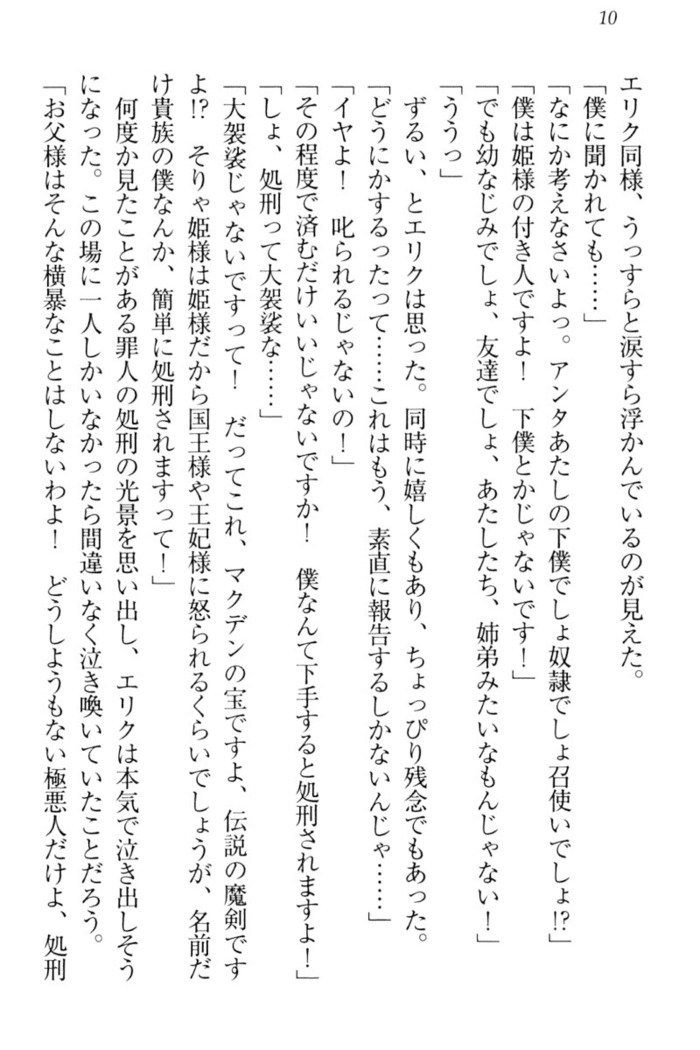 10
エリク同様、うっすらと涙すら浮かんでいるのが見えた。
「僕に聞かれても……」
「なにか考えなさいよっ。アンタあたしの下僕でしょ奴隷でしょ召使いでしょ!?」
「僕は姫様の付き人ですよ！　下僕とかじゃないです！」
「でも幼なじみでしょ、友達でしょ、あたしたち、姉弟みたいなもんじゃない！」
「ううっ」
ずるい、とエリクは思った。同時に嬉しくもあり、ちょっぴり残念でもあった。
「どうにかするったって……これはもう、素直に報告するしかないんじゃ……」
「イヤよ！　叱られるじゃないの！」
「その程度で済むだけいいじゃないですか！　僕なんて下手すると処刑されますよ！」
「しょ、処刑って大袈裟な……」
「大袈裟じゃないですって！　だってこれ、マクデンの宝ですよ、伝説の魔剣です
よ!?　そりゃ姫様は姫様だから国王様や王妃様に怒られるくらいでしょうが、名前だ
け貴族の僕なんか、簡単に処刑されますって！」
何度か見たことがある罪人の処刑の光景を思い出し、エリクは本気で泣き出しそう
になった。この場に一人しかいなかったら間違いなく泣き喚いていたことだろう。
「お父様はそんな横暴なことはしないわよ！　どうしようもない極悪人だけよ、処刑